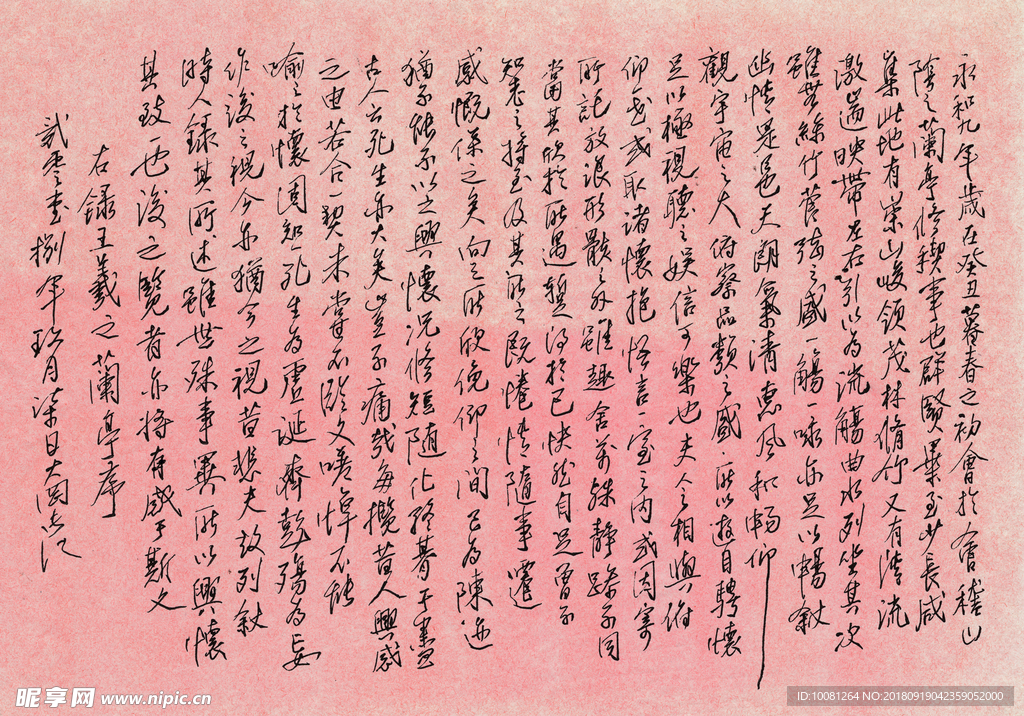 永和九年歲在癸丑暮春之初會於會稽山
陰之蘭亭脩稧事也群賢畢至少長咸
集此地有崇山峻領茂林脩竹又有清流
激湍映帶左右引以為流觴曲水列坐其次
雖無絲竹管弦之盛一觴一詠亦足以暢敘
幽情是日也天朗氣清惠風和暢仰
觀宇宙之大俯察品類之盛所以遊目騁懷
足以極視聽之娛信可樂也夫人之相與俯
仰一世或取諸懷抱悟言一室之內或因寄
所託放浪形骸之外雖趣舍萬殊靜躁不同
當其欣於所遇蹔得於己快然自足曾不
知老之將至及其所之既惓情隨事遷
感慨係之矣向之所欣俛仰之間已為陳迹
猶不能不以之興懷況脩短隨化終期于盡
古人云死生亦大矣豈不痛哉每攬昔人興感
之由若合一契未嘗不臨文嗟悼不能
喻之於懷固知一死生為虛誕齊彭殤為妄
作後之視今亦猶今之視昔悲夫故列敘
時人錄其所述雖世殊事異所以興懷
其致一也後之覽者亦將有感于斯文
右錄王羲之蘭亭序
貳零壹捌年玖月柒日
昵享网 www.nipic.cn
ID:10081264 NO:20180919042359052000